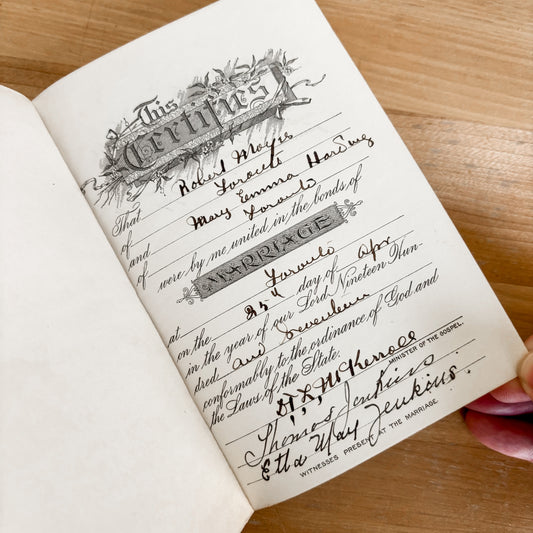 This
Certifies
That Robert Moyes
of Toronto
and Mary Emma Harding
of Toronto
were by me united in the bonds of
MARRIAGE
at Toronto
on the 25th day of Apr
in the year of our Lord Nineteen Hun-
dred and Seventeen
conformably to the ordinance of God and
the Laws of the State.
MINISTER OF THE GOSPEL.
Thomas Jenkins
Etta May Jenkins.
WITNESSES PRESENT AT THE MARRIAGE